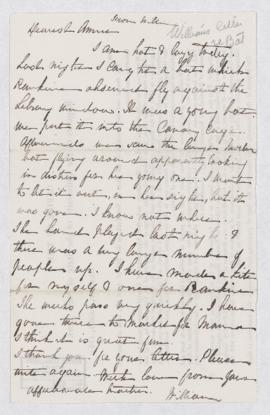 From Will
William's letter
re Bat
Dearest Annie
I am hot & lazy today.
Last night I caught a bat which
observed fly against the
library window. It was a young bat.
We put it into the Canary cage.
Afterwards we saw the larger mother
bat flying around apparently looking
in distress for her young one. I went
to let it out, in her sight, but it
was gone. I know not where.
The band played last night &
there was a very large number of
people up. I have made a kite
for myself & one for
The weeks pass very quickly. I have
gone twice to Market for Mama
I think it is great fun.
I thank you for your letter. Please
write again. With love from your
affectionate brother.
William